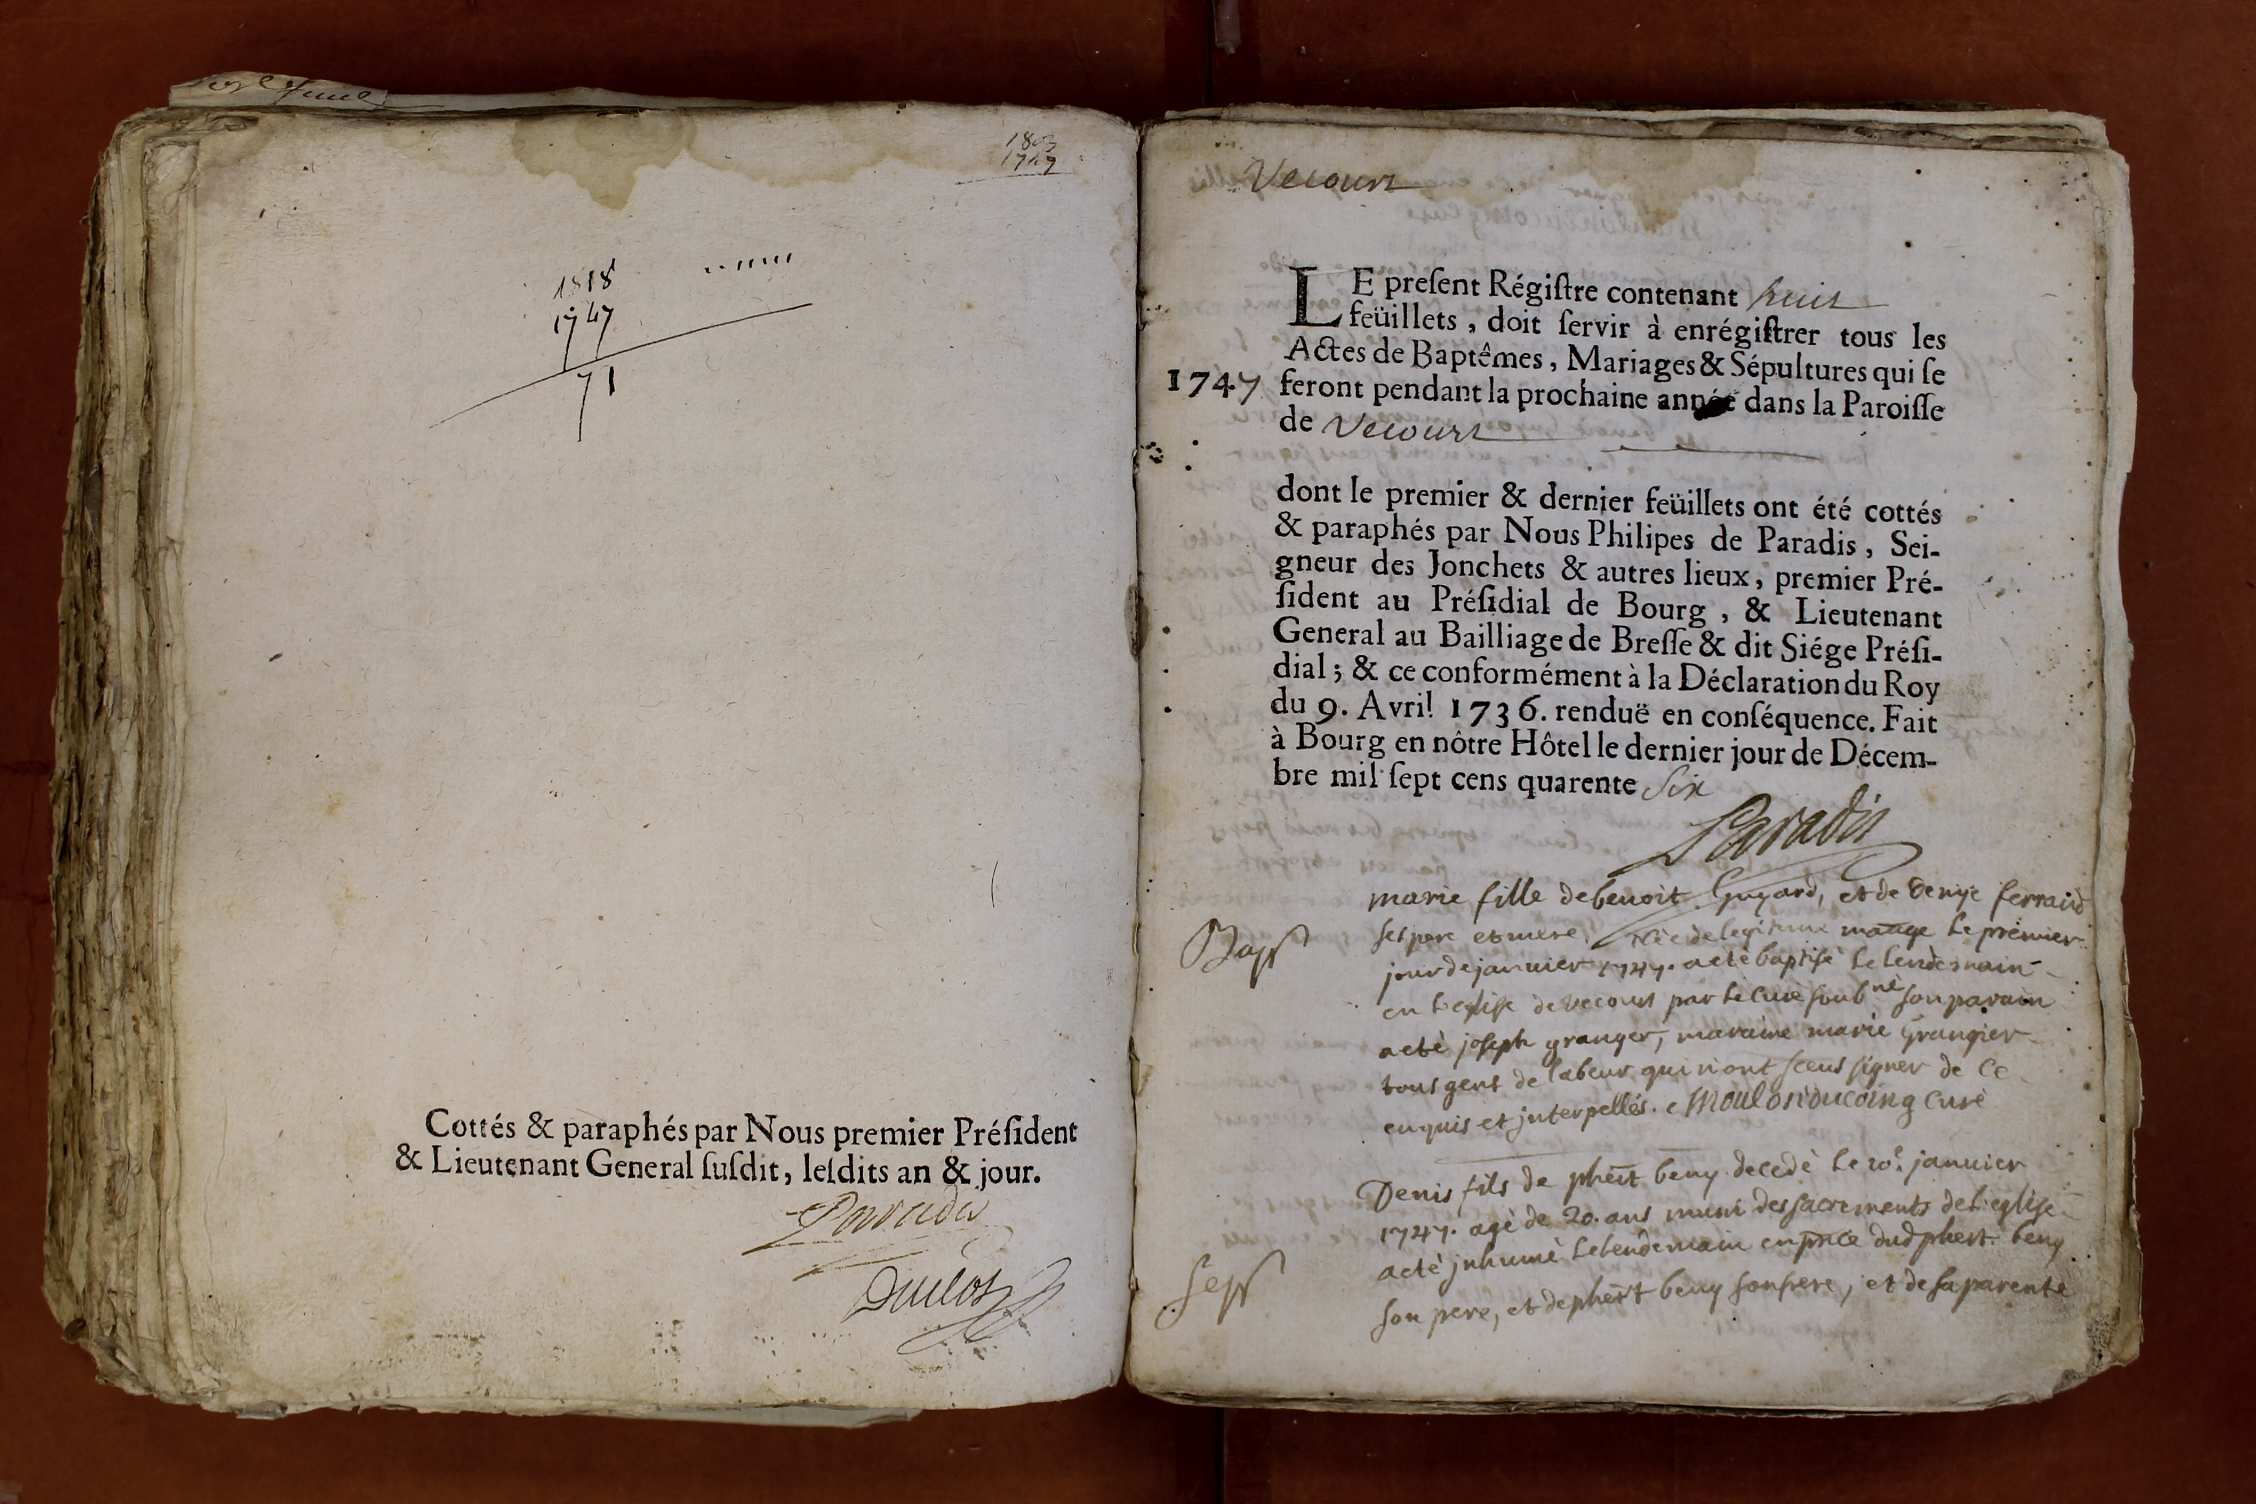 1803
1747
1818
1747
71
Cottés & paraphés par Nous premier Préſident
& Lieutenant General ſuſdit, leſdits an & jour.
Paradis
Duclos
Vecourt
LE preſent Régiſtre contenant huit
feüillets, doit ſervir à enrégiſtrer tous les
Actes de Baptêmes, Mariages & Sépultures qui ſe
1747 feront pendant la prochaine année dans la Paroiſſe
de Vecourt
dont le premier & dernier feüillets ont été cottés
& paraphés par Nous Philipes de Paradis, Sei-
gneur des Jonchets & autres lieux, premier Pré-
ſident au Préſidial de Bourg, & Lieutenant
General au Bailliage de Breſſe & dit Siége Préſi-
dial; & ce conformément à la Déclaration du Roy
du 9. Avril 1736. renduë en conſéquence. Fait
à Bourg en nôtre Hôtel le dernier jour de Décem-
bre mil ſept cens quarente Six
Paradis
marie fille de benoit Guyard, et de Denyse ferraud
Bapt ses pere et mere, née de legitime mariage le premier
jour de janvier 1747. a eté baptisé le lendemain
en l'eglise de vecourt par le curé soubné son parain
a eté joseph granger, maraine marie Grangier
tous gens de labeur qui n'ont sceus signer de ce
enquis et jnterpellés. Moulonducoing curé
Denis fils de phert beny decedé le 20e janvier
1747. agé de 20. ans muni des sacrements de l'eglise
a eté jnhumé le lendemain en pnce dud phert beny
Sept son pere, et de phert beny son frere, et de sa parenté